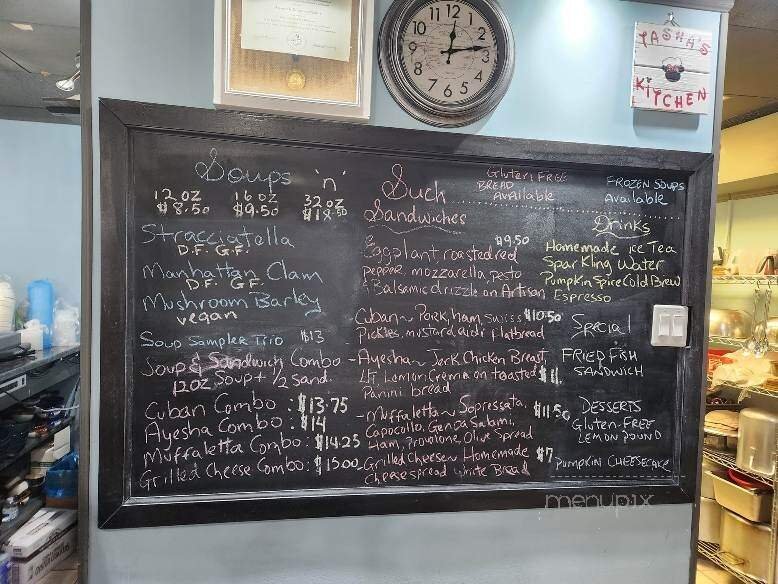 TASHA'S
KITCHEN
12 1 2 3 4 5 6 7 8 9 10 11
Soups 'n'
12 OZ 16 OZ 32 OZ
$8.50 $9.50 $18.50
Stracciatella
D.F. G.F.
Manhattan Clam
D.F. G.F.
Mushroom Barley
vegan
Soup Sampler Trio $13
Soup & Sandwich Combo
12OZ Soup + 1/2 Sand.
Cuban Combo : $13.75
Ayesha Combo : $14
Muffaletta Combo: $14.25
Grilled Cheese Combo: $15.00
Such
Sandwiches
Gluten FREE
BREAD
AvAilable
$9.50
Eggplant roasted red
pepper, mozzarella, pesto
& Balsamic drizzle on Artisan
Cuban ~ Pork, ham, swiss $10.50
Pickles, mustard aioli flatbread
- Ayesha ~ Jerk Chicken Breast
Lemon Crema on toasted $11.
Panini bread
- Muffaletta ~ Sopressata, $11.50
Capocollo, Genoa Salami,
Ham, Provolone, Olive Spread
- Grilled Cheese ~ Homemade $7
Cheese spread White Bread
FROZEN SOUPS
Available
Drinks
Homemade Ice Tea
Sparkling Water
Pumpkin Spice Cold Brew
Espresso
Special
FRIED FISH
SANDWICH
DESSERTS
Gluten-FREE
LEMON POUND
PUMPKIN CHEESECAKE
menupix